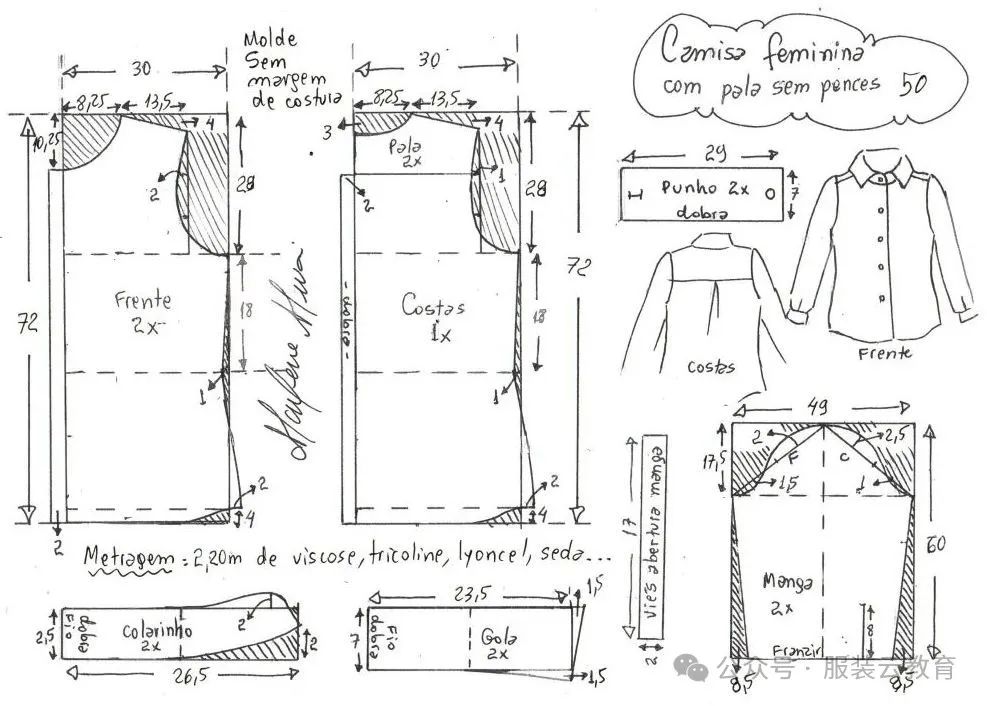 Camisa feminina
com pala sem pences 50
Molde
Sem
margem
de costura
30
8,25
13,5
4
10,25
2
28
72
Frente
2x
18
1
2
4
2
30
8,25
13,5
4
3
Pala
2x
1
2
28
72
-dobra-
Costas
1x
18
1
2
4
29
Punho 2x
dobra
7
Costas
Frente
Metragem: 2,20m de viscose, tricoline, lyoncel, seda...
2,5
Fio
dobra
Colarinho
2x
2
2
26,5
23,5
1,5
7
Fio
dobra
Gola
2x
1,5
17
viés abertura manga
2
49
2
2,5
17,5
F
C
1,5
1
60
Manga
2x
8
Franzir
8,5
8,5
公众号 · 服装云教育